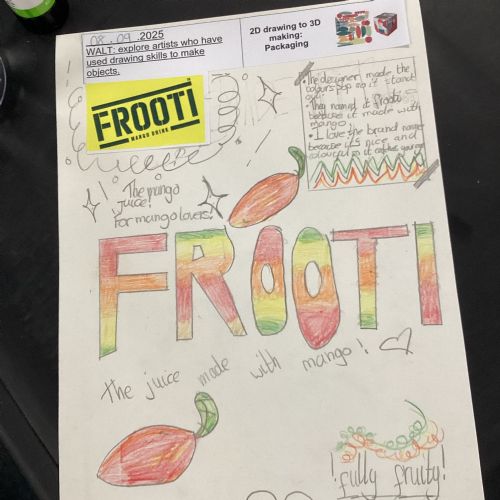 08.09.2025
WALT: explore artists who have
used drawing skills to make
objects.
2D drawing to 3D
making:
Packaging
FROOTI
MANGO DRINK
• The designer made the
colours pop so it stand
out.
• They named it frooti
because it made with
mango.
• I love the brand name
because it's nice and
colourful so it catches your eye
The mango
juice!
For mango lovers!
FROOTI
the juice made with mango!
!fully fruity!